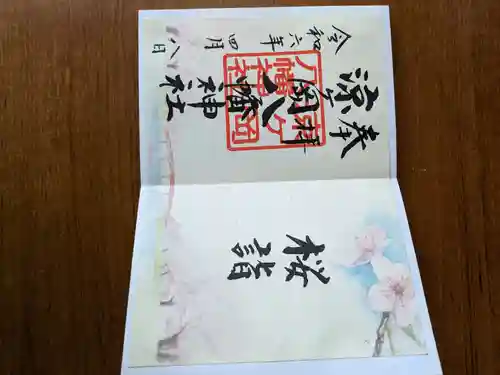 桜詣
奉拝
涼ケ岡八幡神社
令和六年四月八日